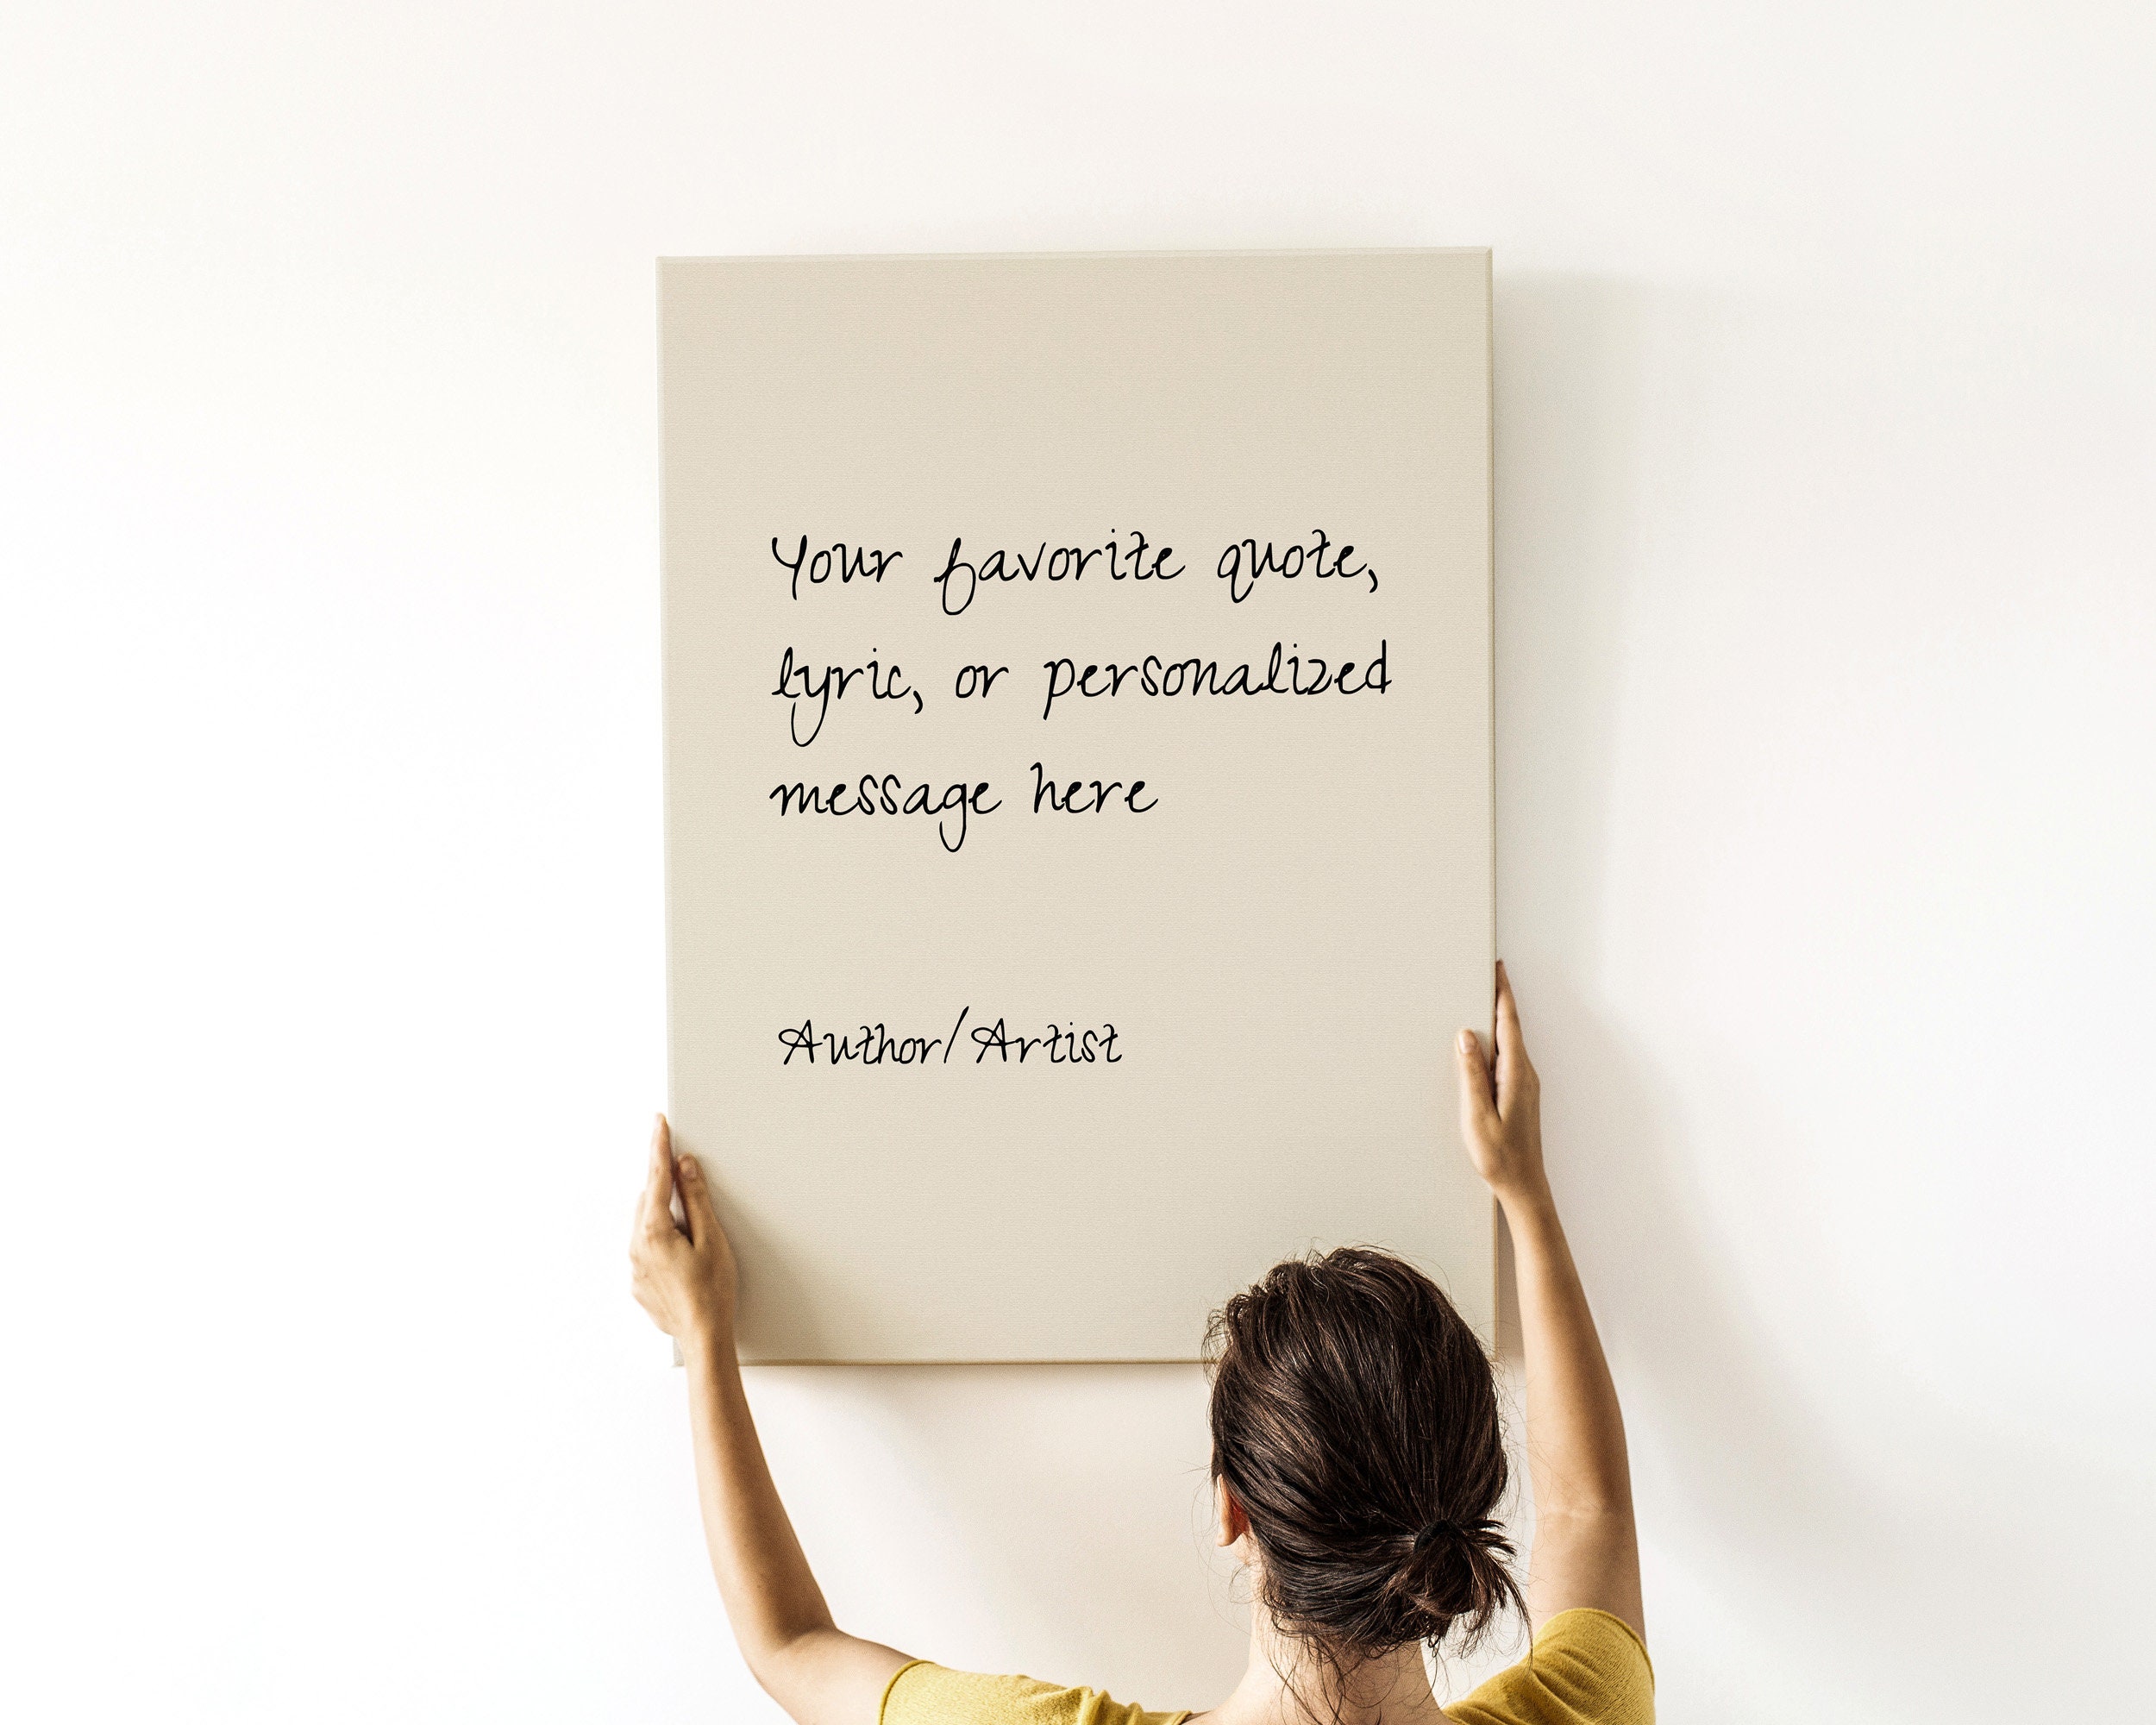 Your favorite quote,
lyric, or personalized
message here
Author/Artist